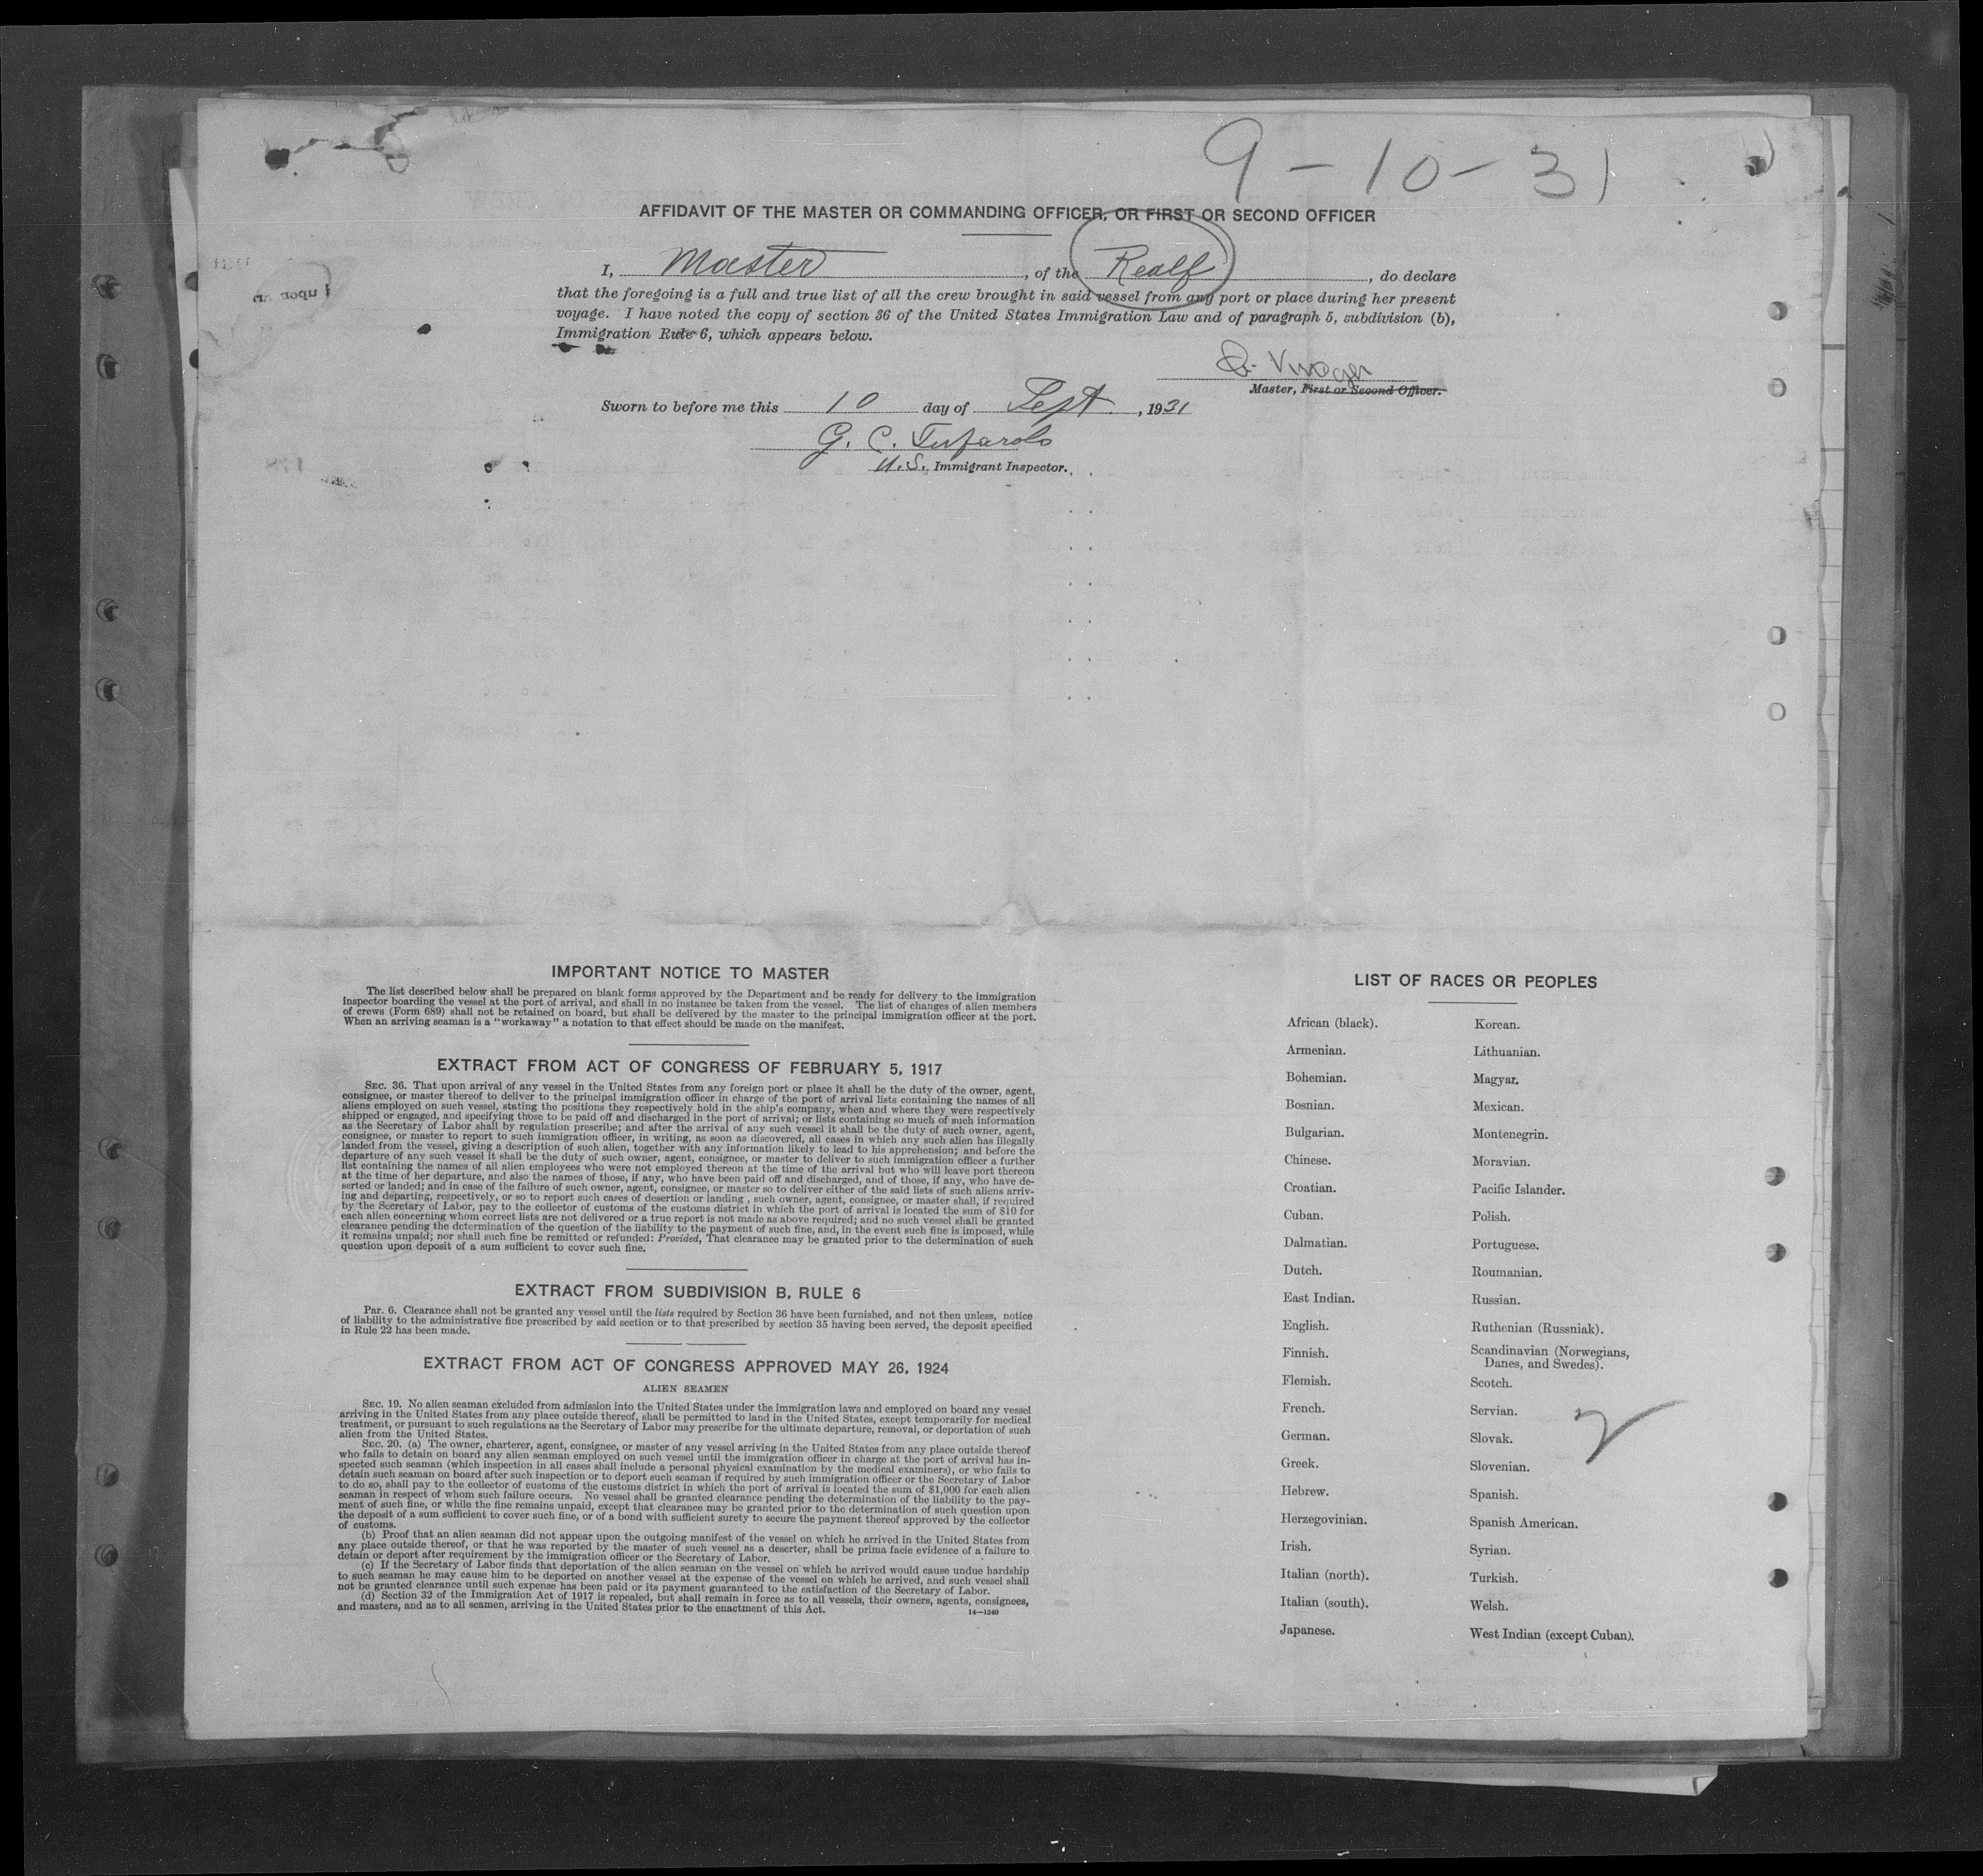 9-10-31
AFFIDAVIT OF THE MASTER OR COMMANDING OFFICER, OR FIRST OR SECOND OFFICER
I, Master, of the Realf, do declare
that the foregoing is a full and true list of all the crew brought in said vessel from any port or place during her present
voyage. I have noted the copy of section 36 of the United States Immigration Law and of paragraph 5, subdivision (b),
Immigration Rule 6, which appears below.
Master, First or Second Officer.
Sworn to before me this 10 day of Sept, 1931
G. C.
U.S. Immigrant Inspector.
IMPORTANT NOTICE TO MASTER
The list described below shall be prepared on blank forms approved by the Department and be ready for delivery to the immigration
inspector boarding the vessel at the port of arrival, and shall in no instance be taken from the vessel. The list of changes of alien members
of crews (Form 689) shall not be retained on board, but shall be delivered by the master to the principal immigration officer at the port.
When an arriving seaman is a "workaway" a notation to that effect should be made on the manifest.
EXTRACT FROM ACT OF CONGRESS OF FEBRUARY 5, 1917
SEC. 36. That upon arrival of any vessel in the United States from any foreign port or place it shall be the duty of the owner, agent,
consignee, or master thereof to deliver to the principal immigration officer in charge of the port of arrival lists containing the names of all
aliens employed on such vessel, stating the positions they respectively hold in the ship's company, when and where they were respectively
shipped or engaged, and specifying those to be paid off and discharged in the port of arrival; or lists containing so much of such information
as the Secretary of Labor shall by regulation prescribe; and after the arrival of any such vessel it shall be the duty of such owner, agent,
consignee, or master to report to such immigration officer, in writing, as soon as discovered, all cases in which any such alien has illegally
landed from the vessel, giving a description of such alien, together with any information likely to lead to his apprehension; and before the
departure of any such vessel it shall be the duty of such owner, agent, consignee, or master to deliver to such immigration officer a further
list containing the names of all alien employees who were not employed thereon at the time of the arrival but who will leave port thereon
at the time of her departure, and also the names of those, if any, who have been paid off and discharged, and of those, if any, who have de-
serted or landed; and in case of the failure of such owner, agent, consignee, or master so to deliver either of the said lists of such aliens arriv-
ing and departing, respectively, or so to report such cases of desertion or landing , such owner, agent, consignee, or master shall, if required
by the Secretary of Labor, pay to the collector of customs of the customs district in which the port of arrival is located the sum of $10 for
each alien concerning whom correct lists are not delivered or a true report is not made as above required; and no such vessel shall be granted
clearance pending the determination of the question of the liability to the payment of such fine, and, in the event such fine is imposed, while
it remains unpaid; nor shall such fine be remitted or refunded: Provided, That clearance may be granted prior to the determination of such
question upon deposit of a sum sufficient to cover such fine.
EXTRACT FROM SUBDIVISION B, RULE 6
PAR. 6. Clearance shall not be granted any vessel until the lists required by Section 36 have been furnished, and not then unless, notice
of liability to the administrative fine prescribed by said section or to that prescribed by section 35 having been served, the deposit specified
in Rule 22 has been made.
EXTRACT FROM ACT OF CONGRESS APPROVED MAY 26, 1924
ALIEN SEAMEN
SEC. 19. No alien seaman excluded from admission into the United States under the immigration laws and employed on board any vessel
arriving in the United States from any place outside thereof, shall be permitted to land in the United States, except temporarily for medical
treatment, or pursuant to such regulations as the Secretary of Labor may prescribe for the ultimate departure, removal, or deportation of such
alien from the United States.
SEC. 20. (a) The owner, charterer, agent, consignee, or master of any vessel arriving in the United States from any place outside thereof
who fails to detain on board any alien seaman employed on such vessel until the immigration officer in charge at the port of arrival has in-
spected such seaman (which inspection in all cases shall include a personal physical examination by the medical examiners), or who fails to
detain such seaman on board after such inspection or to deport such seaman if required by such immigration officer or the Secretary of Labor
to do so, shall pay to the collector of customs of the customs district in which the port of arrival is located the sum of $1,000 for each alien
seaman in respect of whom such failure occurs. No vessel shall be granted clearance pending the determination of the liability to the pay-
ment of such fine, or while the fine remains unpaid, except that clearance may be granted prior to the determination of such question upon
the deposit of a sum sufficient to cover such fine, or of a bond with sufficient surety to secure the payment thereof approved by the collector
of customs.
(b) Proof that an alien seaman did not appear upon the outgoing manifest of the vessel on which he arrived in the United States from
any place outside thereof, or that he was reported by the master of such vessel as a deserter, shall be prima facie evidence of a failure to
detain or deport after requirement by the immigration officer or the Secretary of Labor.
(c) If the Secretary of Labor finds that deportation of the alien seaman on the vessel on which he arrived would cause undue hardship
to such seaman he may cause him to be deported on another vessel at the expense of the vessel on which he arrived, and such vessel shall
not be granted clearance until such expense has been paid or its payment guaranteed to the satisfaction of the Secretary of Labor.
(d) Section 32 of the Immigration Act of 1917 is repealed, but shall remain in force as to all vessels, their owners, agents, consignees,
and masters, and as to all seamen, arriving in the United States prior to the enactment of this Act.
14—1240
LIST OF RACES OR PEOPLES
African (black).
Armenian.
Bohemian.
Bosnian.
Bulgarian.
Chinese.
Croatian.
Cuban.
Dalmatian.
Dutch.
East Indian.
English.
Finnish.
Flemish.
French.
German.
Greek.
Hebrew.
Herzegovinian.
Irish.
Italian (north).
Italian (south).
Japanese.
Korean.
Lithuanian.
Magyar.
Mexican.
Montenegrin.
Moravian.
Pacific Islander.
Polish.
Portuguese.
Roumanian.
Russian.
Ruthenian (Russniak).
Scandinavian (Norwegians,
Danes, and Swedes).
Scotch.
Servian.
Slovak.
Slovenian.
Spanish.
Spanish American.
Syrian.
Turkish.
Welsh.
West Indian (except Cuban).
2